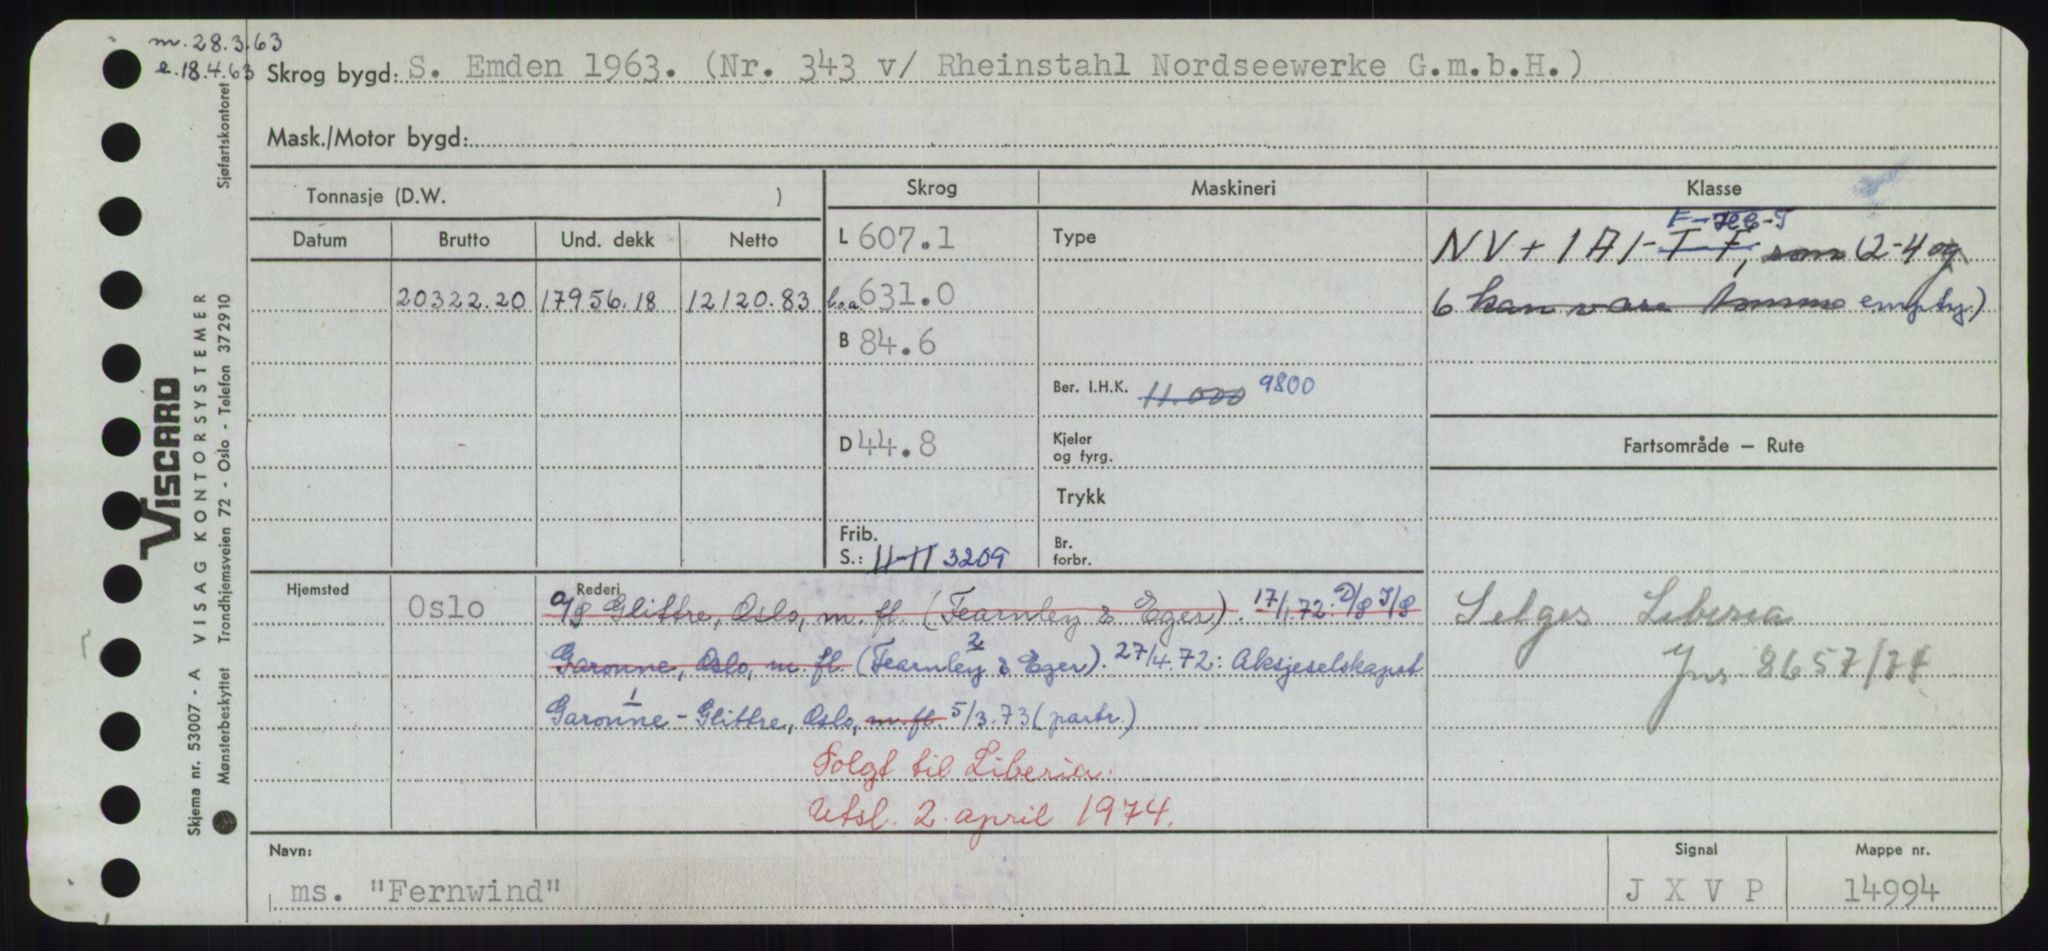 m. 28.3.63
e. 18.4.63
Skrog bygd: S. Emden 1963. (Nr. 343 v/ Rheinstahl Nordseewerke G.m.b.H.)
Mask./Motor bygd:
Tonnasje (D.W. )
Skrog
Maskineri
Klasse
Datum
Brutto
Und. dekk
Netto
20322.20
17956.18
12120.83
L 607.1
l.o.a. 631.0
B 84.6
D 44.8
Frib.
S.: 11-11 3209
Type
Ber. I.H.K. 11.000 9800
Kjeler
og fyrg.
Trykk
Br.
forbr.
NV + 1A1 - T F, som (2-4 og
6 kan være tomme empty)
Fartsområde — Rute
Selges Liberia
Jnr. 8657/74
Hjemsted
Oslo
Rederi
A/S Glittre, Oslo, m. fl. (Fearnley & Eger). 17/1.72: D/S I/S
Garonne, Oslo, m. fl. (Fearnley & Eger). 27/4.72: Aksjeselskapet
Garonne - Glittre, Oslo, m. fl. 5/3.73 (partr.)
Solgt til Liberia.
Utsl. 2. april 1974.
Navn:
ms. "Fernwind"
Signal
J X V P
Mappe nr.
14994
VISCARD
Skjema nr. 53007 - A VISAG KONTORSYSTEMER
Mønsterbeskyttet Trondhjemsveien 72 - Oslo - Telefon 372910
Sjøfartskontoret